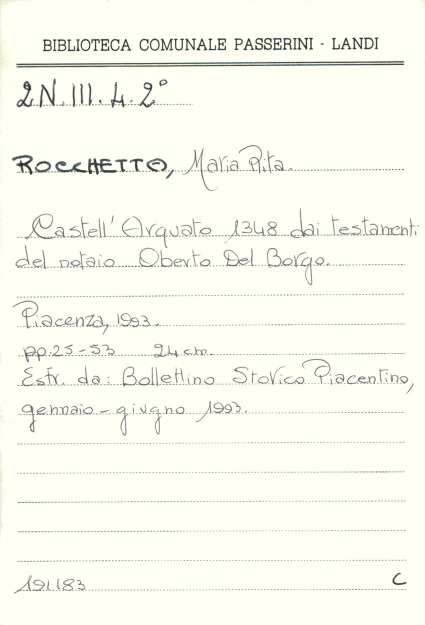 BIBLIOTECA COMUNALE PASSERINI - LANDI
2N.III.4.2°
ROCCHETTA, Maria Rita.
Castell'Arquato 1348 dai testamenti
del notaio Oberto Del Borgo.
Piacenza, 1993.
pp.25-53 24cm.
Estr. da: Bollettino Storico Piacentino,
gennaio - giugno 1993.
191183 C